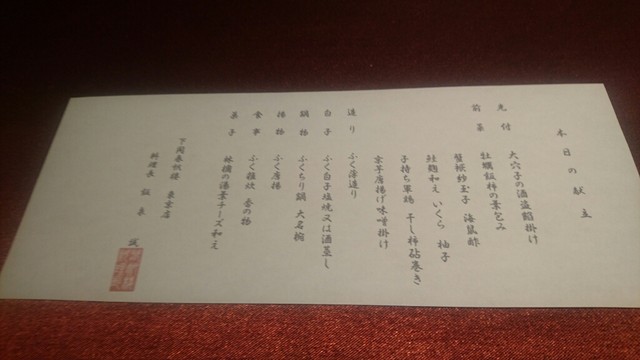 本日の献立
先付 大六子の酒盗餡掛け
前菜 牡蠣飯柿の葉包み
蟹袱紗玉子 海鼠酢
鮭麹和え いくら 柚子
子持ち昆布 干し柿砧巻き
京芋唐揚げ味噌掛け
造り ふく薄造り
白子 ふく白子塩焼又は酒蒸し
鍋物 ふくちり鍋 大名椀
揚物 ふく唐揚
食事 ふく雑炊 香の物
菓子 林檎の湯葉チーズ和え
下関春帆楼 東京店
料理長 飯泉 誠